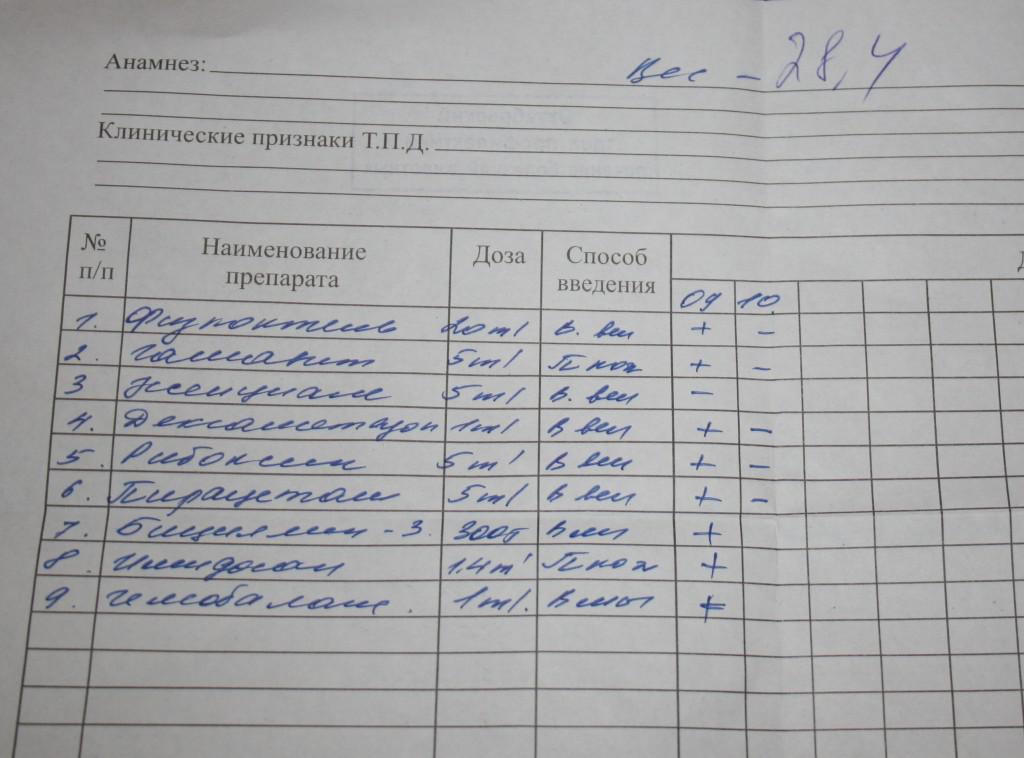 Анамнез: Вес - 28,4
Клинические признаки Т.П.Д.
№ п/п Наименование препарата Доза Способ введения Д
09 10.
1. Физраствор 20ml В. вен + -
2. Гамавит 5ml П кож + -
3 5ml В. вен -
4. Дексаметазон 1ml В вен + -
5. Рибоксин 5ml В вен + -
6. Пирацетам 5ml В вен + -
7. Бициллин - 3. 300т Вмы +
8. 1.4ml П кож +
9. Гемобаланс. 1ml. Вмы +